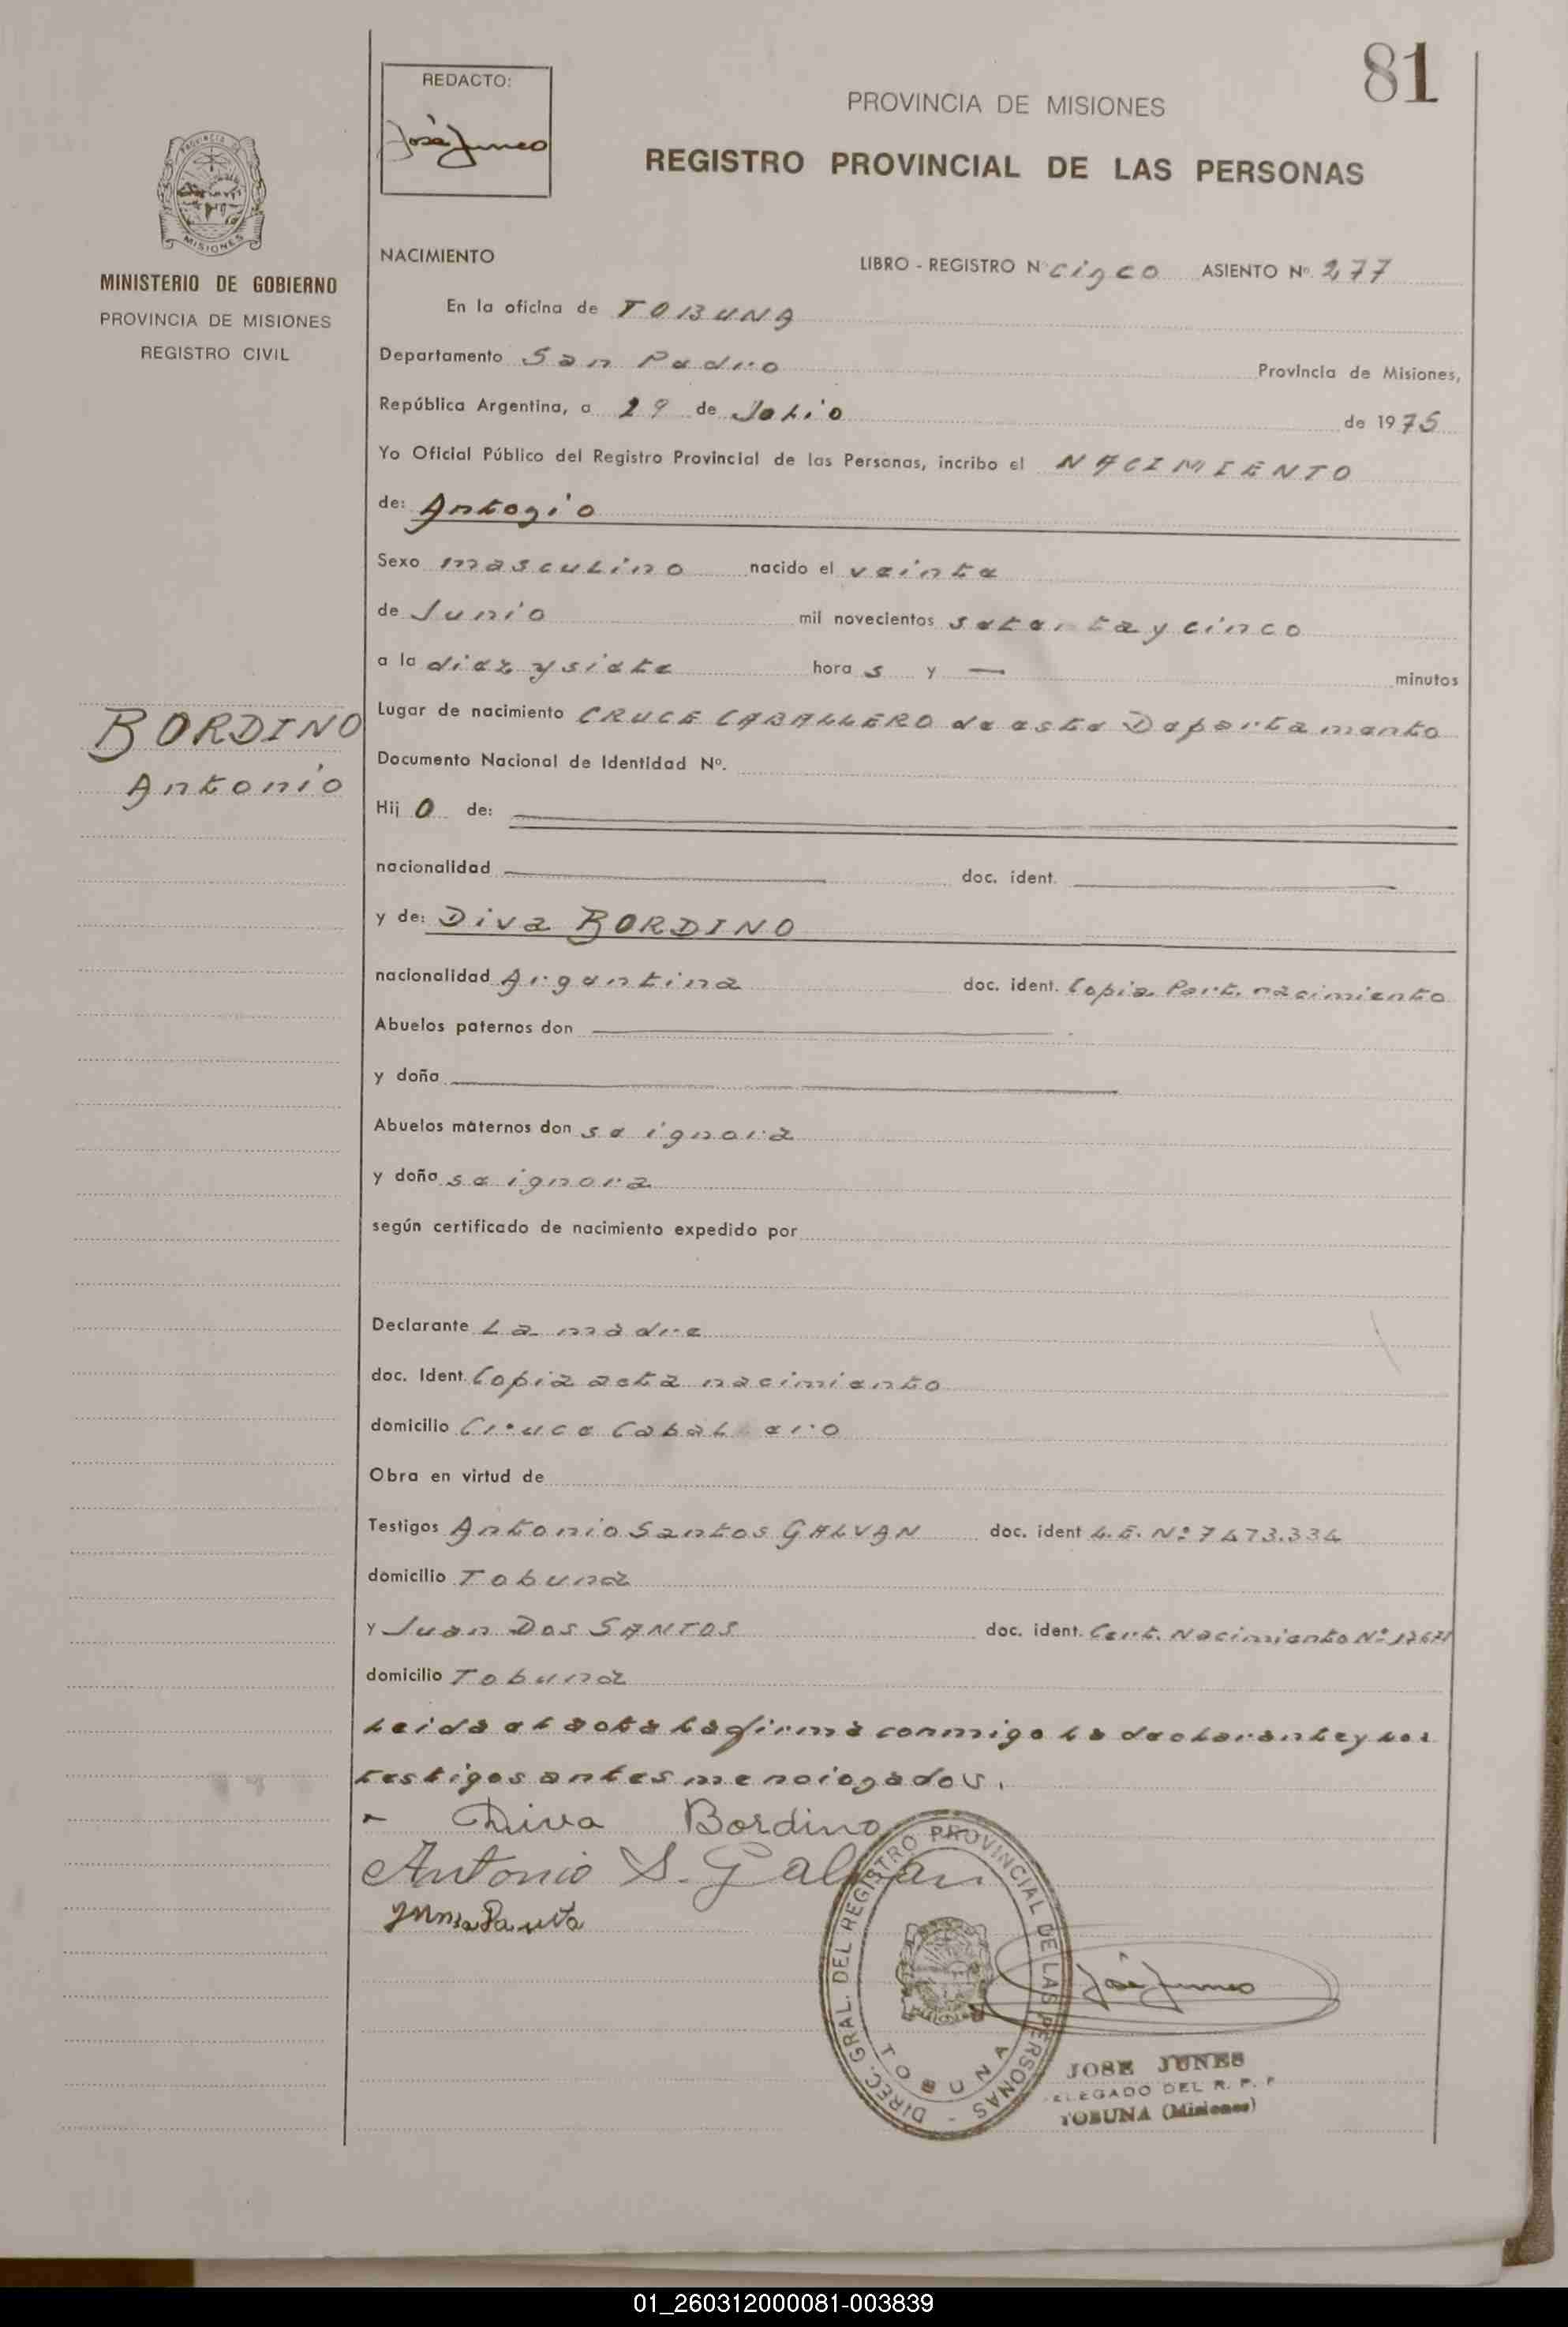 81
REDACTO:
José Junes
PROVINCIA DE MISIONES
REGISTRO PROVINCIAL DE LAS PERSONAS
MISIONES
MINISTERIO DE GOBIERNO
PROVINCIA DE MISIONES
REGISTRO CIVIL
NACIMIENTO
LIBRO - REGISTRO Nº cinco ASIENTO Nº 277
En la oficina de TOBUNA
Departamento San Pedro Provincia de Misiones,
República Argentina, a 29 de Julio de 1975
Yo Oficial Público del Registro Provincial de las Personas, incribo el NACIMIENTO
de: Antonio
Sexo masculino nacido el veinte
de Junio mil novecientos setenta y cinco
a la diez y siete hora s y — minutos
BORDINO
Antonio
Lugar de nacimiento CRUCE CABALLERO de este Departamento
Documento Nacional de Identidad Nº.
Hij o de:
nacionalidad doc. ident.
y de: Diva BORDINO
nacionalidad Argentina doc. ident. Copia Part. nacimiento
Abuelos paternos don
y doña
Abuelos maternos don se ignora
y doña se ignora
según certificado de nacimiento expedido por
Declarante La madre
doc. Ident. Copia acta nacimiento
domicilio Cruce Caballero
Obra en virtud de
Testigos Antonio Santos GALVAN doc. ident L.E. Nº 7473.334
domicilio Tobuna
y Juan Dos SANTOS doc. ident. Cert. Nacimiento Nº
domicilio Tobuna
Leida el acta la firma conmigo la declarante y los
testigos antes mencionados.
Diva Bordino
Antonio S. Galvan
DIREC. GRAL. DEL REGISTRO PROVINCIAL DE LAS PERSONAS -
TOBUNA
José Junes
JOSE JUNES
DELEGADO DEL R. P. P
TOBUNA (Misiones)
01_260312000081-003839